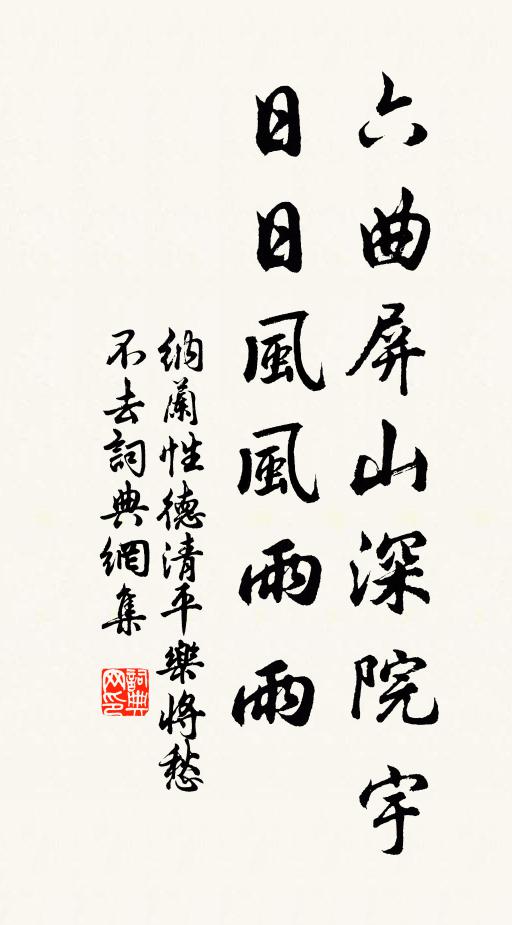 六曲屏山深院宇
日日風風雨雨
納蘭性德清平樂將愁
不去詞典網集
詞典网印